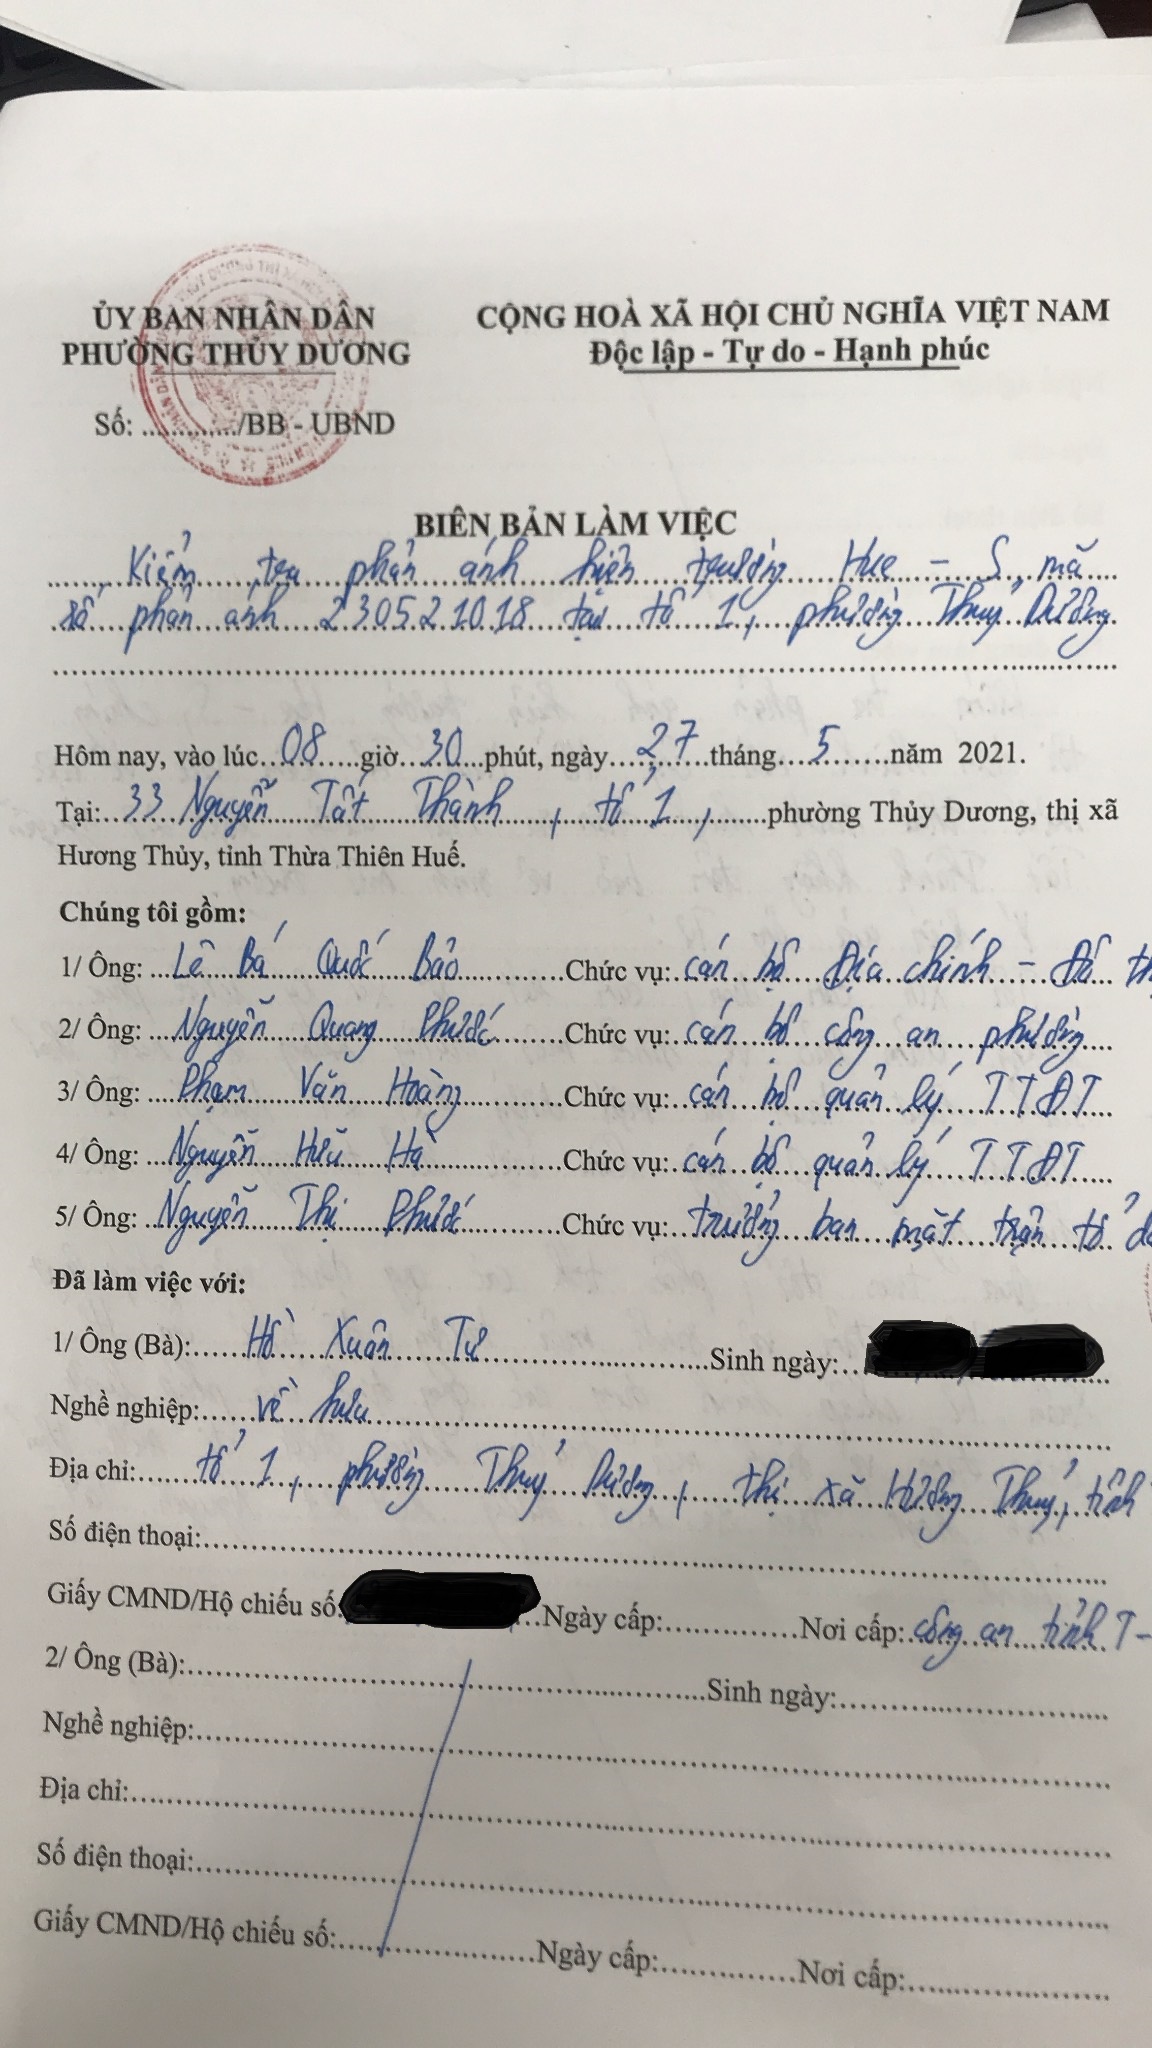 ỦY BAN NHÂN DÂN
PHƯỜNG THỦY DƯƠNG
CỘNG HOÀ XÃ HỘI CHỦ NGHĨA VIỆT NAM
Độc lập - Tự do - Hạnh phúc
Số: ............/BB - UBND
BIÊN BẢN LÀM VIỆC
Kiểm tra phản ánh hiện trường Hue - S, mã
số phản ánh 230521018 tại tổ 1, phường Thuỷ Dương
Hôm nay, vào lúc 08 giờ 30 phút, ngày 27 tháng 5 năm 2021.
Tại: 33 Nguyễn Tất Thành, tổ 1, phường Thủy Dương, thị xã
Hương Thủy, tỉnh Thừa Thiên Huế.
Chúng tôi gồm:
1/ Ông: Lê Bá Quốc Bảo Chức vụ: cán bộ Địa chính - Đô th
2/ Ông: Nguyễn Quang Phước Chức vụ: cán bộ công an phường
3/ Ông: Phạm Văn Hoàng Chức vụ: cán bộ quản lý TTĐT
4/ Ông: Nguyễn Hữu Hà Chức vụ: cán bộ quản lý TTĐT
5/ Ông: Nguyễn Thị Phước Chức vụ: trưởng ban mặt trận tổ
Đã làm việc với:
1/ Ông (Bà): Hồ Xuân Tư Sinh ngày:
Nghề nghiệp: về hưu
Địa chỉ: tổ 1, phường Thuỷ Dương, thị xã Hương Thuỷ, tỉnh
Số điện thoại:
Giấy CMND/Hộ chiếu số: Ngày cấp: Nơi cấp: công an tỉnh T-
2/ Ông (Bà): Sinh ngày:
Nghề nghiệp:
Địa chỉ:
Số điện thoại:
Giấy CMND/Hộ chiếu số: Ngày cấp: Nơi cấp: